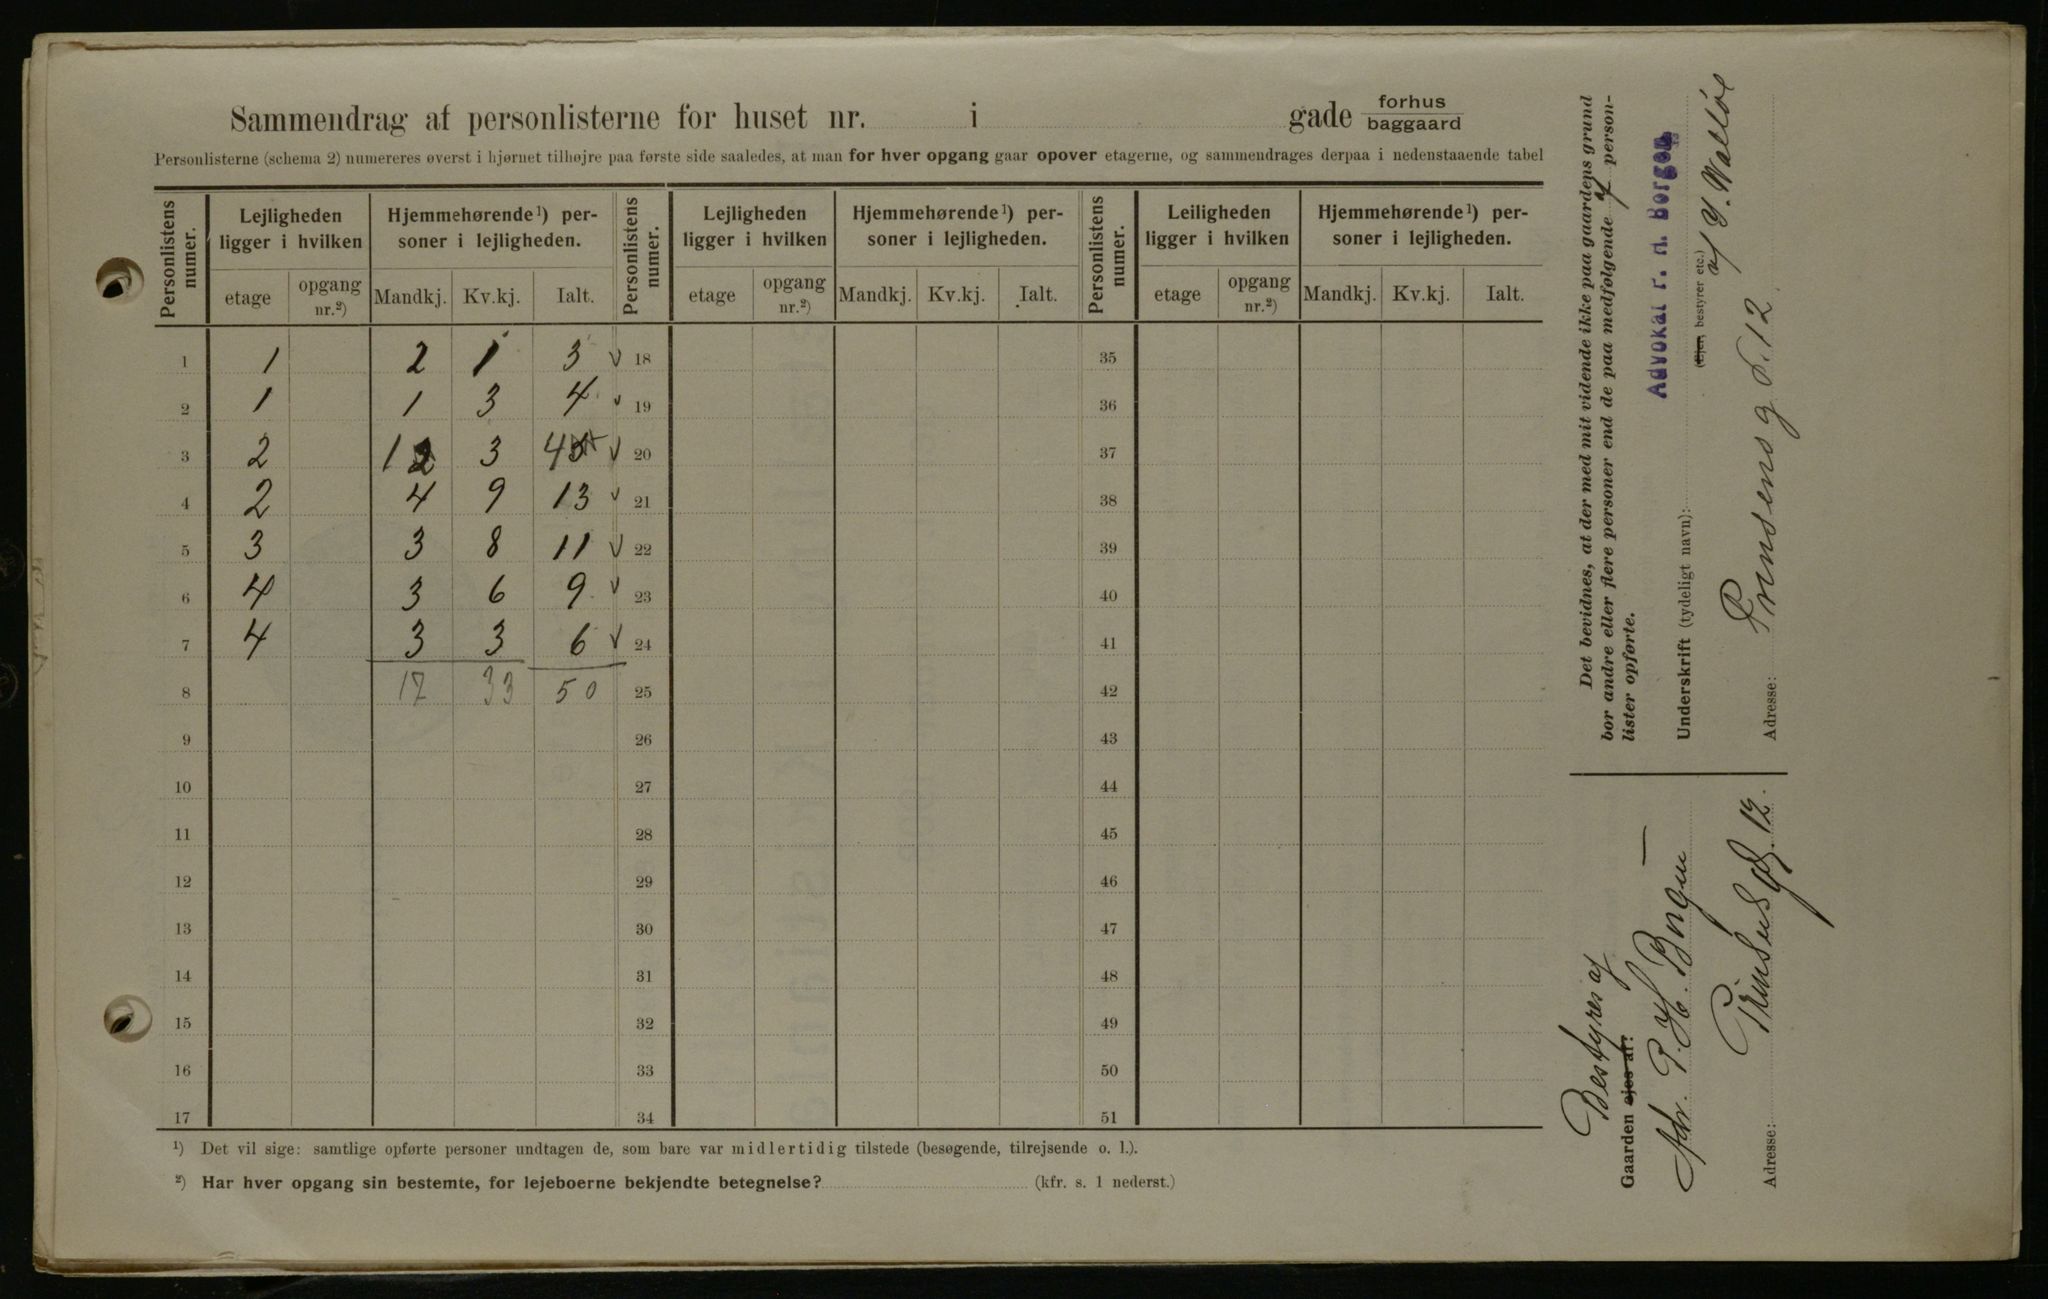 Sammendrag af personlisterne for huset nr. i gade forhus baggaard
Personlisterne (schema 2) numereres øverst i hjørnet tilhøjre paa første side saaledes, at man for hver opgang gaar opover etagerne, og sammendrages derpaa i nedenstaaende tabel
Personlistens numer. Lejligheden ligger i hvilken Hjemmehørende¹) personer i lejligheden. Personlistens numer. Lejligheden ligger i hvilken Hjemmehørende¹) personer i lejligheden. Personlistens numer. Leiligheden ligger i hvilken Hjemmehørende¹) personer i lejligheden.
etage opgang nr.²) Mandkj. Kv.kj. Ialt. etage opgang nr.²) Mandkj. Kv.kj. Ialt. etage opgang nr.²) Mandkj. Kv.kj. Ialt.
1 1 2 1 3 18 35
2 1 1 3 4 19 36
3 2 1 2 3 4 5 20 37
4 2 4 9 13 21 38
5 3 3 8 11 22 39
6 4 3 6 9 23 40
7 4 3 3 6 24 41
8 17 33 50 25 42
9 26 43
10 27 44
11 28 45
12 29 46
13 30 47
14 31 48
15 32 49
16 33 50
17 34 51
¹) Det vil sige: samtlige opførte personer undtagen de, som bare var midlertidig tilstede (besøgende, tilrejsende o. l.).
²) Har hver opgang sin bestemte, for lejeboerne bekjendte betegnelse? (kfr. s. 1 nederst.)
Det bevidnes, at der med mit vidende ikke paa gaardens grund
bor andre eller flere personer end de paa medfølgende 7 person-
lister opførte.
Advokat r. H. Borgen
Underskrift (tydeligt navn):
(Ejer, bestyrer etc.)
Adresse: Prinsensg. 12.
Bestyres af
Gaarden ejes af:
P. H. Borgen
Adresse: Prinsensgd. 12.